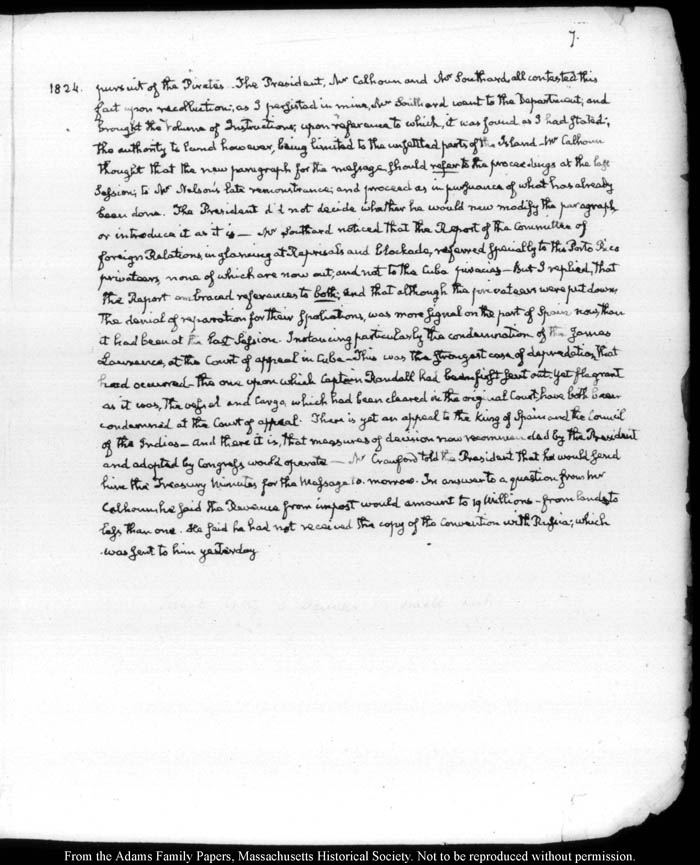 7.
1824. pursuit of the Pirates. The President, Mr Calhoun and Mr Southard, all contested this
fact upon recollection; as I persisted in mine, Mr Southard went to the Department, and
brought the Volume of Instructions; upon reference to which, it was found as I had stated;
The authority to land however, being limited to the unsettled parts of the Island_ Mr Calhoun
thought that the new paragraph for the message, should refer to the proceedings at the last
Session; to Mr Nelson's late remonstrance; and proceed as in pursuance of what has already
been done. The President did not decide whether he would new modify the paragraph,
or introduce it as it is_ Mr Southard noticed that the Report of the Committee of
foreign Relations, in glancing at Reprisals and blockade, referred specially to the Porto Rico
privateers, none of which are now out, and not to the Cuba piracies_ But I replied, That
the Report embraced references to both; and that although the privateers were put down,
The denial of reparation for their spoliations, was more signal on the part of Spain now, than
it had been at the last Session. Instancing particularly the condemnation of the James
Lawrence, at the Court of appeal in Cuba_ This was the strongest case of depredation, that
had occurred_ the one upon which Captain Randall had been first sent out. Yet flagrant
as it was, The vessel and Cargo, which had been cleared in the original Court, have both been
condemned at the Court of appeal. There is yet an appeal to the King of Spain and the Council
of the Indies_ and there it is, that measures of decision now recommended by the President
and adopted by Congress would operate_ Mr Crawford told the President that he would send
him the Treasury Minutes for the Message to-morrow. In answer to a question from Mr
Calhoun he said the Revenue from impost would amount to 19 Millions_ from lands to
less than one. He said he had not received the copy of the Convention with Russia; which
was sent to him yesterday
From the Adams Family Papers, Massachusetts Historical Society. Not to be reproduced without permission.